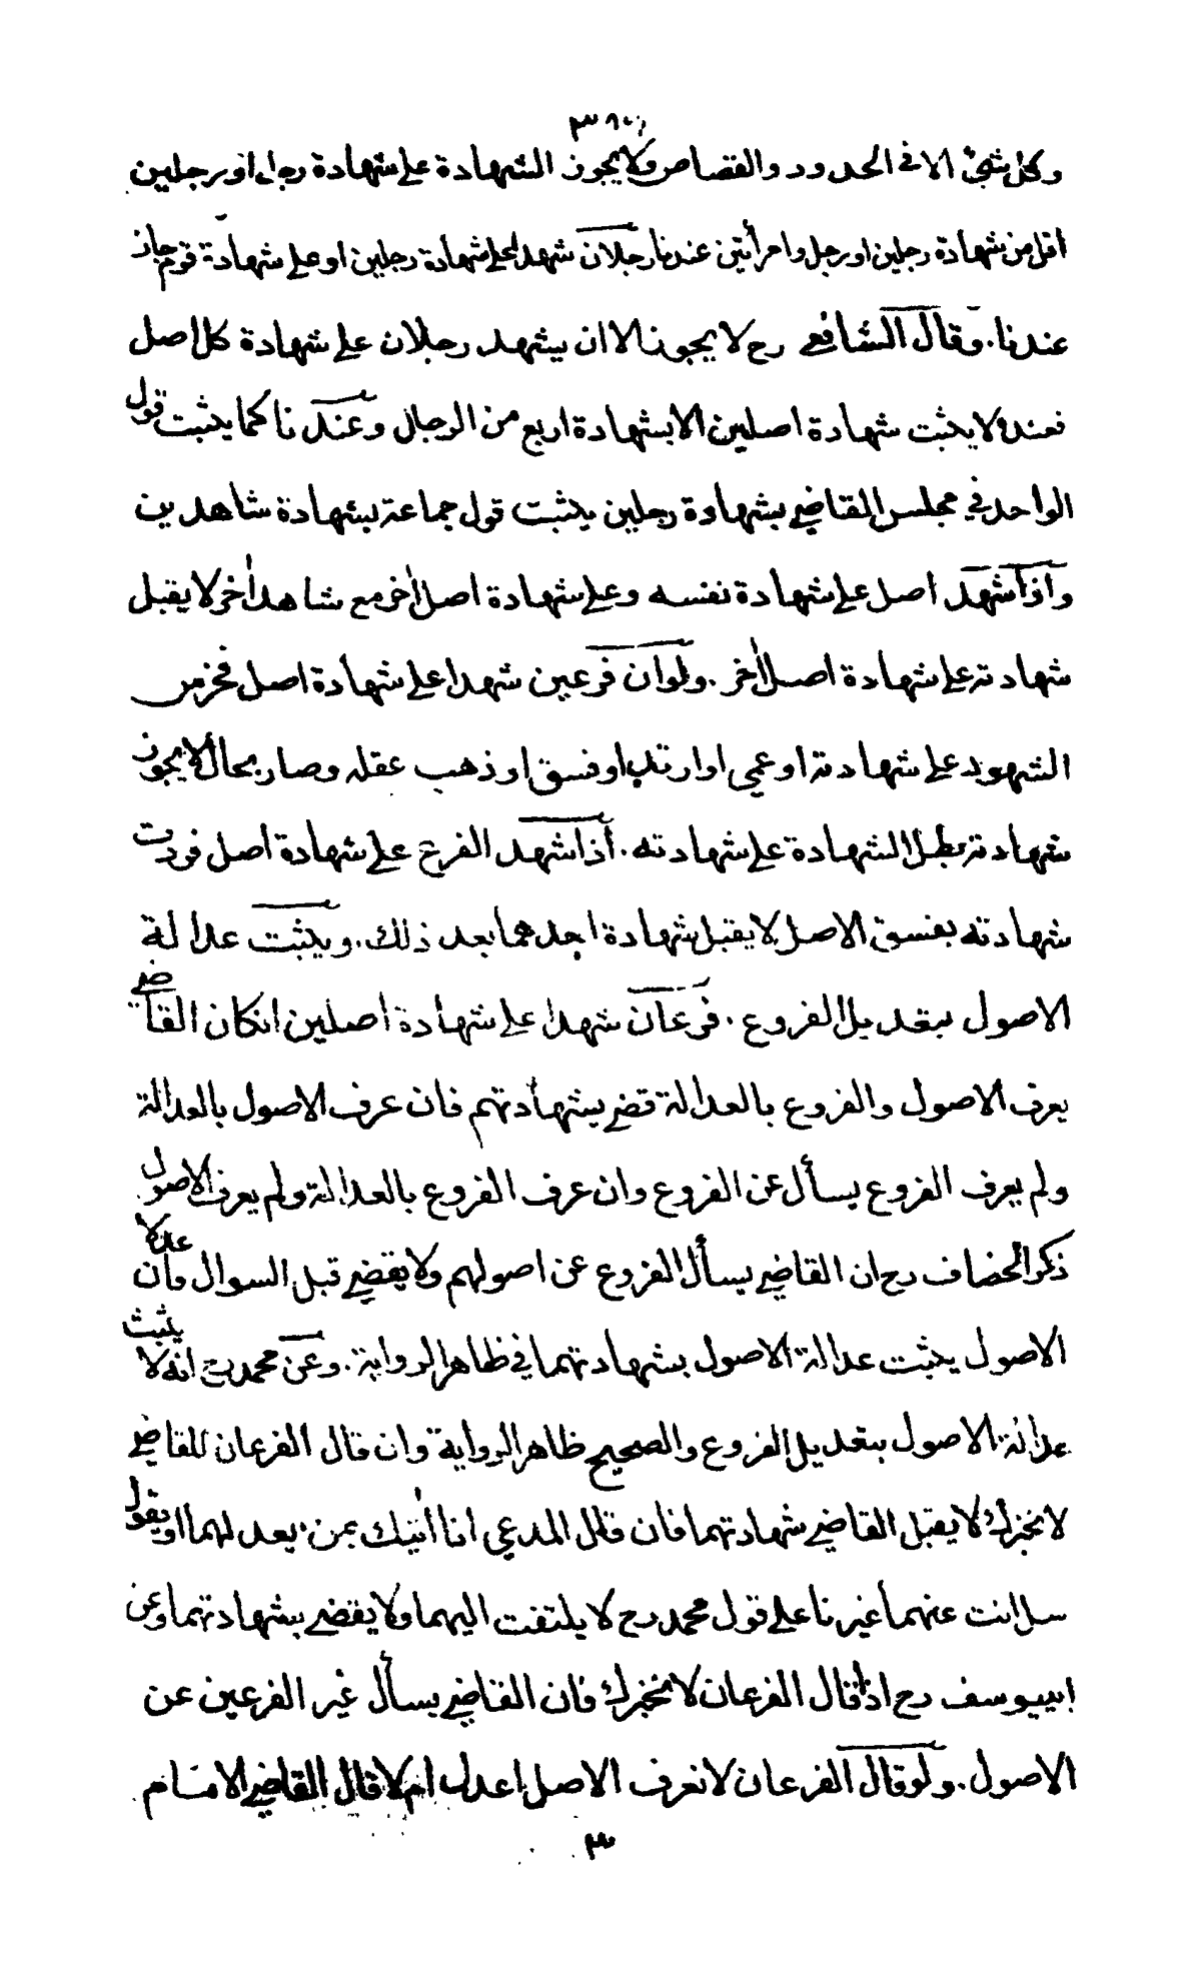 وكل شيئ الا فى الحدود والقصاص ولا يجوز الشهادة على شهادة رجل او رجلين
اقل من شهادة رجلين او رجل وامرأتين عندنا رجلان شهدا على شهادة رجلين او على شهادة قوم جاز
عندنا. وقال الشافعى رح لا يجوز الا ان يشهد رجلان على شهادة كل اصل
فعنده لا يثبت شهادة اصلين الا بشهادة اربع من الرجال وعندنا كما يثبت قول
الواحد في مجلس القاضي بشهادة رجلين يثبت قول جماعة بشهادة شاهدين
واذا شهد اصل على شهادة نفسه وعلى شهادة اصل اٰخر مع شاهد اٰخر لا يقبل
شهادته على شهادة اصل اٰخر. ولو ان فرعين شهدا على شهادة اصل فخرس
الشهود على شهادته او عمي او ارتد او فسق او ذهب عقله وصار بحال لا يجوز
شهادته بطل الشهادة على شهادته. اذا شهد الفرع على شهادة اصل فردت
شهادته بفسق الاصل لا يقبل شهادة احدهما بعد ذلك. ويثبت عدالة
الاصول بتعديل الفروع. فرعان شهدا على شهادة اصلين انكان القاضي
يعرف الاصول والفروع بالعدالة قضى بشهادتهم فان عرف الاصول بالعدالة
ولم يعرف الفروع يسأل عن الفروع وان عرف الفروع بالعدالة ولم يعرف الاصول
ذكر الخصاف رح ان القاضي يسأل الفروع عن اصولهم ولا يقضي قبل السوال فان عدلا
الاصول يثبت عدالة الاصول بشهادتهما في ظاهر الرواية. وعن محمد رح انه لا يثبت
عدالة الاصول بتعديل الفروع والصحيح ظاهر الرواية وان قال الفرعان للقاضي
لا نخبرك لا يقبل القاضي شهادتهما فان قال المدعي انا اٰتيك بمن يعدلهما او يقول
سل انت عنهما غيرنا على قول محمد رح لا يلتفت اليهما ولا يقضي بشهادتهما وعن
ابييوسف رح اذا قال الفرعان لا نخبرك فان القاضي يسأل غير الفرعين عن
الاصول. ولو قال الفرعان لا نعرف الاصل اعدل ام لا قال القاضي الامام
٣